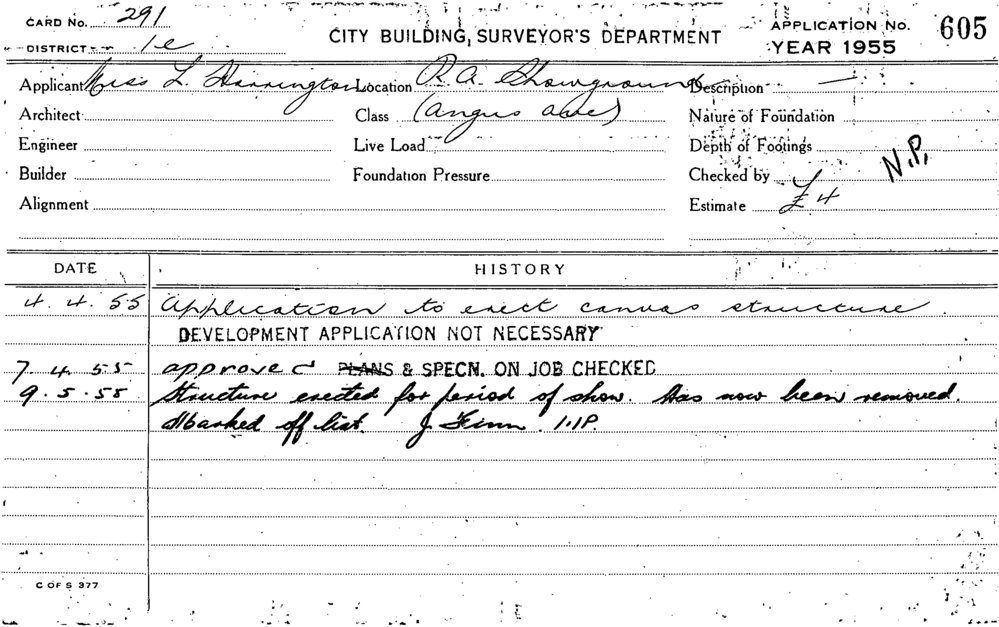 CARD No. 291
DISTRICT 1e
CITY BUILDING SURVEYOR'S DEPARTMENT
APPLICATION No. 605
YEAR 1955
Applicant Miss L. Harrington Location R.A. Showground Description —
Architect Class (Angus Ave) Nature of Foundation
Engineer Live Load Depth of Footings
N.P.
Builder Foundation Pressure Checked by
Alignment Estimate £4
DATE HISTORY
4.4.55 Application to erect canvas structure
DEVELOPMENT APPLICATION NOT NECESSARY
7.4.55 approved PLANS & SPECN. ON JOB CHECKED
9.5.55 Structure erected for period of show. Has now been removed.
Marked off list. J Finn 1.1P.
C OF S 377